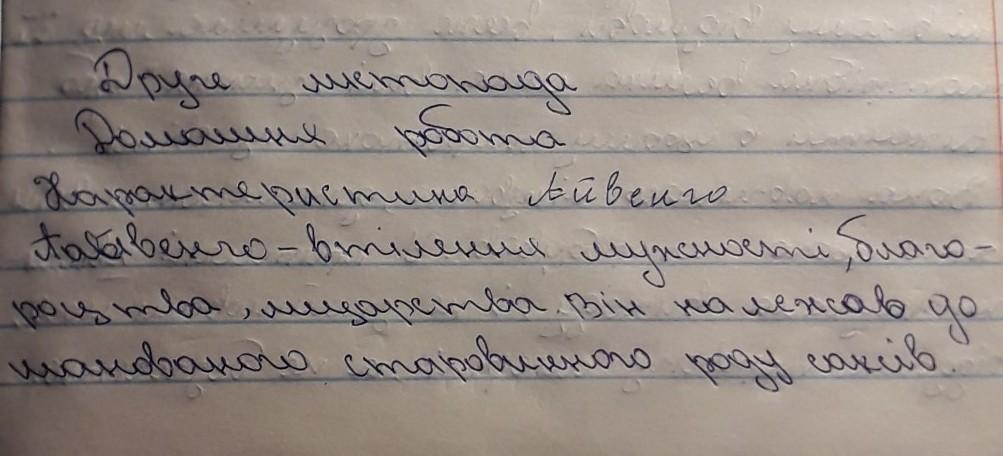 Друге листопада
Домашня робота
Характеристика Айвенго
Айвенго – втілення мужності, благо-
роцтва, лицарства. Він належав до
шанованого старовинного роду саксів.